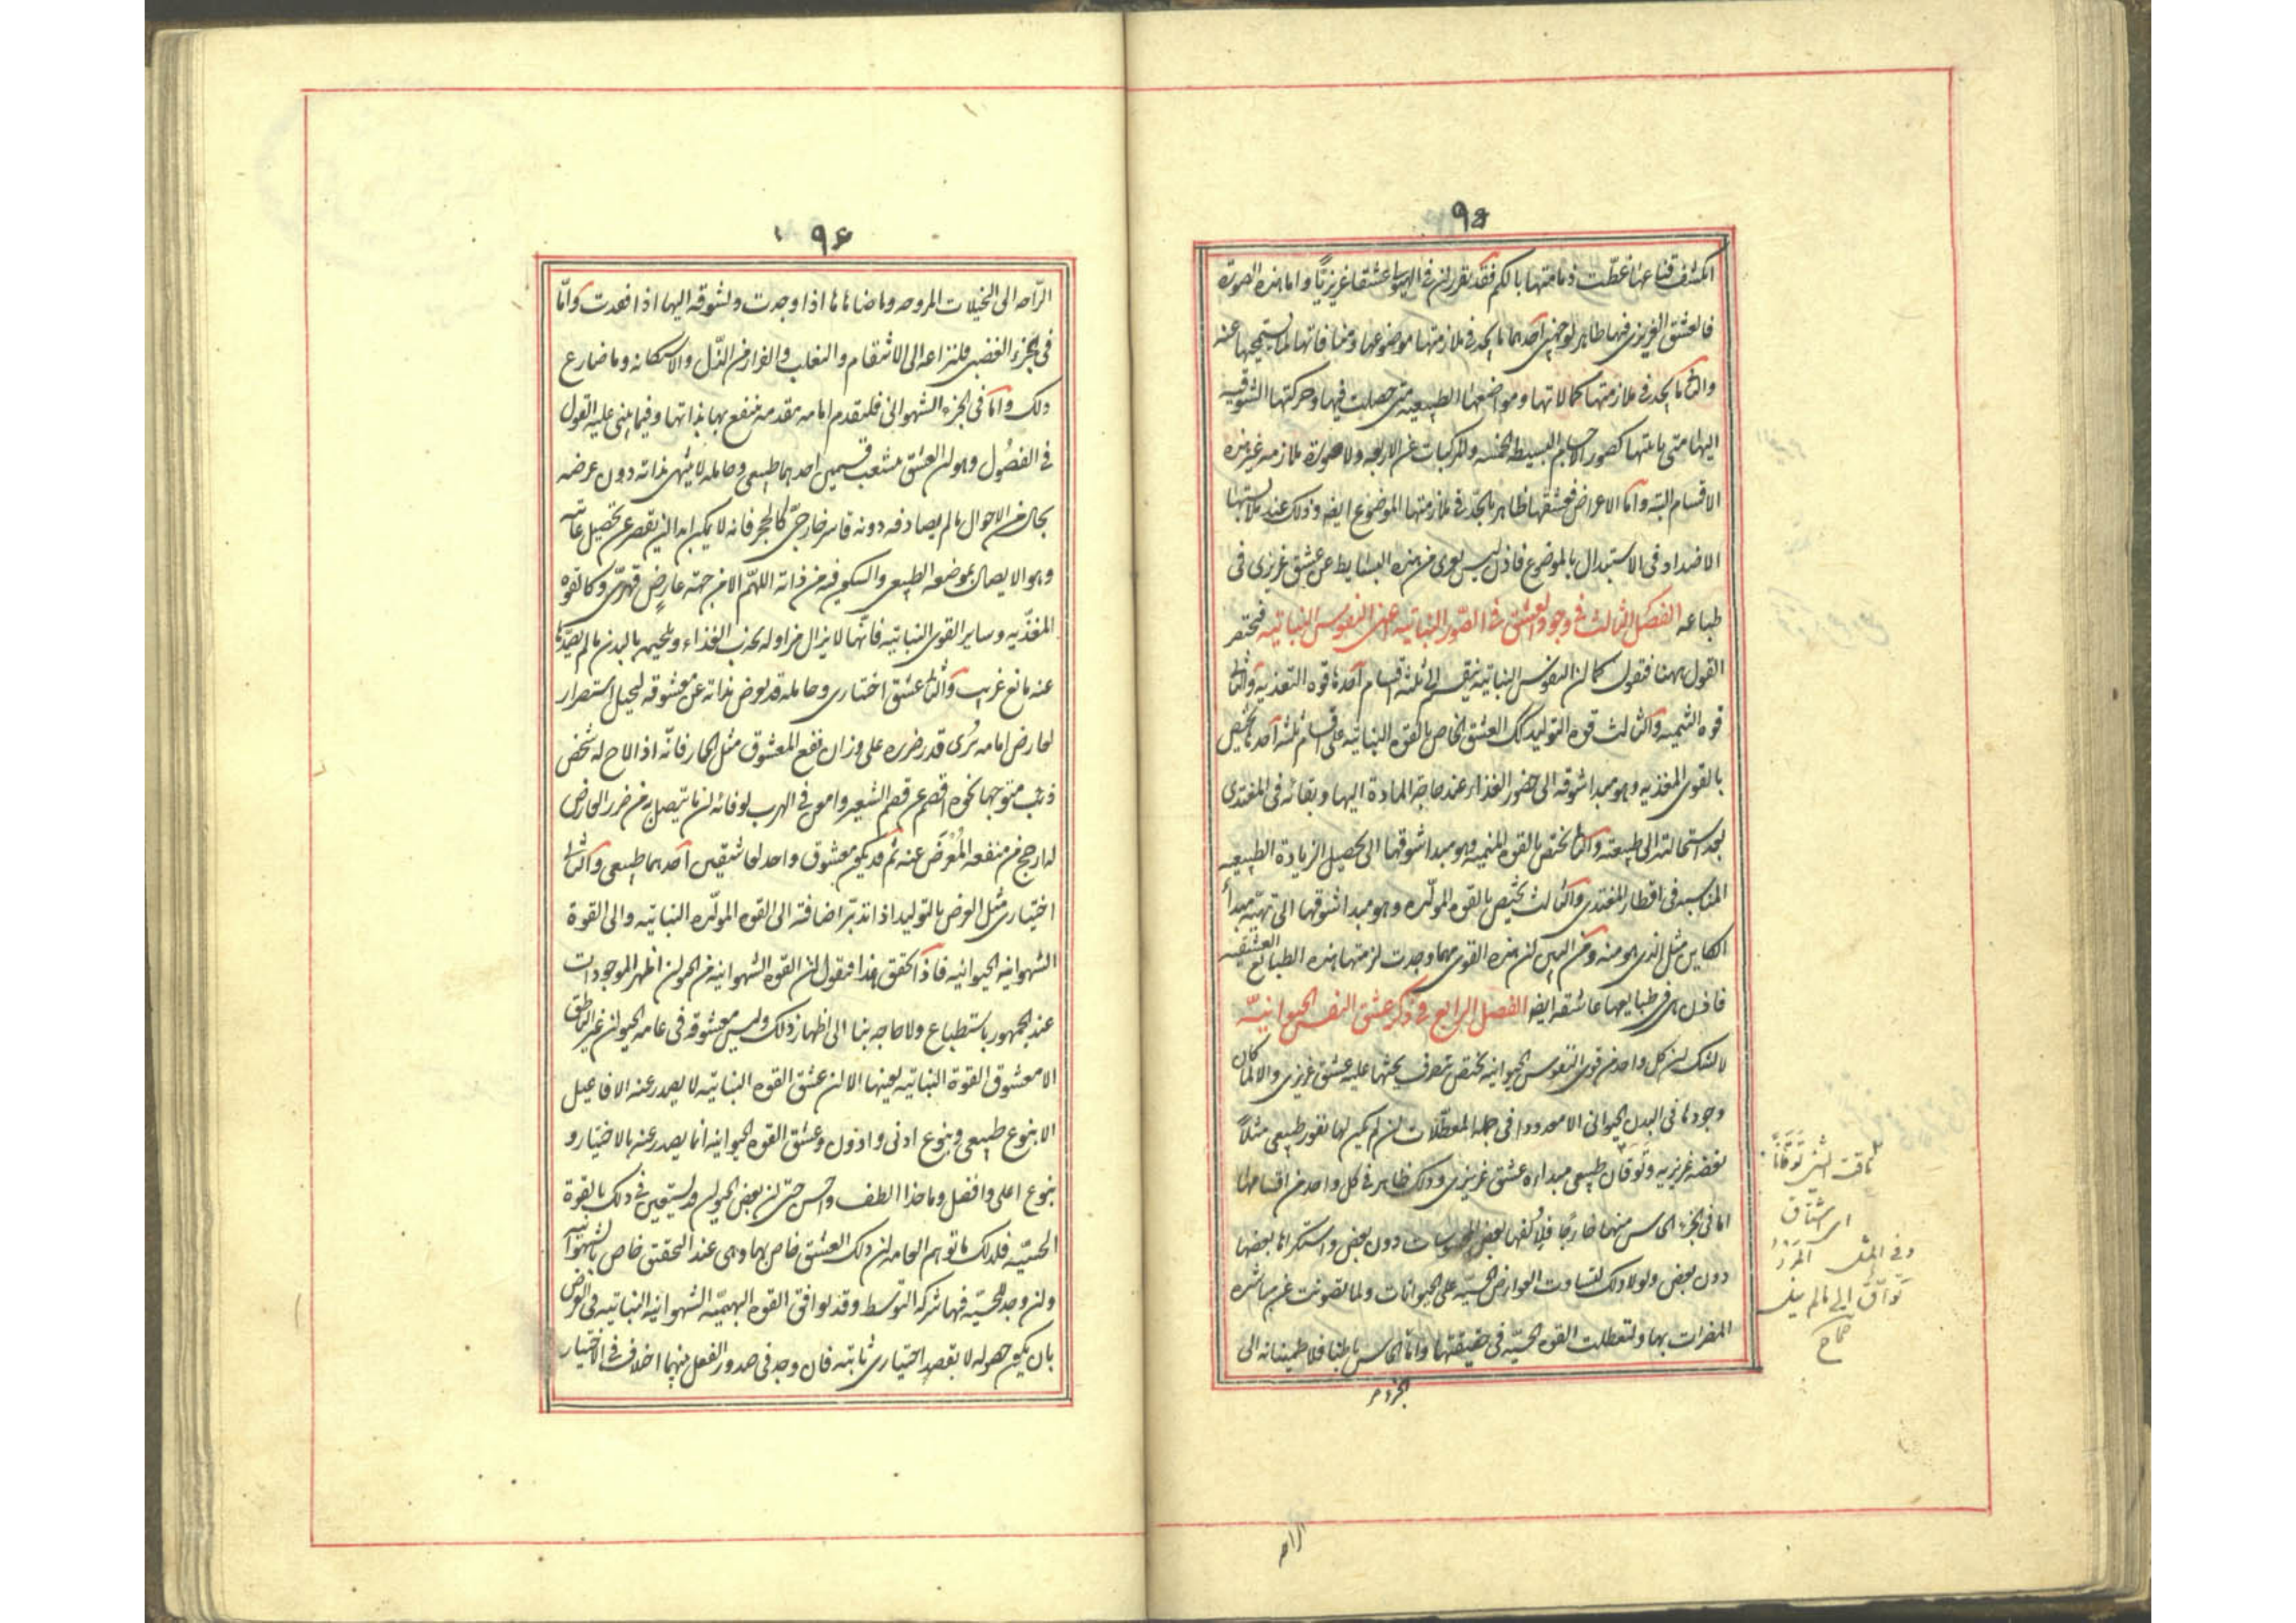 ٩٥
انكشف قناعها غطت ذمائمها بالكم فقد تقرر ان فى الهيولى عشقا غريزيّا واما هذه الصورة
فالعشق الغريزى فيها ظاهر لوجهين احدهما ما يجد فى ملازمتها موضوعها ومنافاتها لما يستحيها عنه
والثانى ما يجد فى ملازمتها كمالاتها ومواضعها الطبيعيه متى حصلت فيها وحركتها الشوقيه
اليها متى باينتها كصور الاجسام البسيطه الخمسه والمركبات عن الاربعه ولا صورة ملازمه غير هذه
الاقسام البته واما الاعراض فعشقها ظاهر بالجد فى ملازمتها الموضوع ايضه وذلك عند ملابستها
الاضداد فى الاستبدال بالموضوع فاذن ليس يعرى من هذه البسايط عن عشق غريزى فى
طباعه الفصل الثالث فى وجود العشق فى الصّور النباتيه اعنى النفوس النباتيه فنختصر
القول ههنا فنقول كما ان النفوس النباتيه ينقسم الى ثلثه اقسام احدها قوه التغذيه والثانى
قوه التنميه والثالث قوه التوليد كك العشق الخاص بالقوه النباتيه على اقسام ثلثه احدها يختص
بالقوى المغذيه وهو مبدا شوقه الى حضور الغذاء عند حاجة المادة اليها وبقائه فى المغتذى
بعد استحالته الى طبيعته والثانى يختص بالقوه المنميه وهو مبدا شوقها الى تحصيل الزيادة الطبيعيه
المناسبه فى اقطار المغتذى والثالث يختص بالقوه المولّده وهو مبدا شوقها الى تهيئه مبدأ
الكاين مثل الذى هو منه ومن البين ان هذه القوى مهما وجدت لزمتها هذه الطبايع العشقيه
فاذن هى فى طبايعها عاشقه ايضه الفصل الرابع فى ذكر عشق النفس الحيوانيّه
لا شك ان كل واحد من قوى النفوس الحيوانيه يختص بتصرف يحثها عليه عشق غريزى والا لما كان
وجودها فى البدن الحيوانى الا معدودا فى جمله المعطّلات ان لم يكن لها نفور طبيعى مثلاً
بغضه غريزيه وتَوَقان طبيعى مبداه عشق غريزى وذلك ظاهر فى كل واحد من اقسامها
اما فى الجزء الحاس منها خارجًا فلالفها بعض المحسوسات دون بعض واستكراها بعضها
دون بعض ولولا ذلك لتساوت العوارض الحسيّه على الحيوانات ولما تصونت عن مباشره
المضرات بها ولتعطلت القوه الحسيّه فى حقيقتها وامّا الحاس باطنا فلاطمينانه الى
تاقت النفس تَوَقَاناً
اى اشتاق
وفى المثل المرء
توّاق الى مالم ينل
صحاح
الراحه
٩٦
الرّاحه الى التخيلات المروحه وما ضاهاها اذا وجدت ولشوقه اليها اذا فقدت وامّا
فى الجزء الغضبى فلنزاعه الى الانتقام والتغلب والفرار من الذّل والاستكانه وما ضارع
ذلك وامّا فى الجزء الشهوانى فلنقدم امامه مقدمه ينتفع بها بذاتها وفيما يبنى عليه القول
فى الفصُول وهو ان العشق يتشعب قسمين احدهما طبيعى وحامله لا ينتهى بذاته دون غرضه
بحال من الاحوال ما لم يصادفه دونه قاسر خارجىّ كالحجر فانه لا يمكن ابدا ان يقصر عن تحصيل غايته
وهو الاتصال بموضعه الطبيعى والسكون فيه من ذاته اللهمّ الا من جهته عارض قهرىّ وكالقوه
المغذّيه وساير القوى النباتيه فانّها لا يزال مزاوله لجذب الغذاء وتلحيمه بالبدن ما لم يصدّها
عنه مانع غريب والثانى عشق اختيارى وحامله قد يعرض بذاته عن معشوقه لتخيل استضرار
لعارض امامه يُرى قدر ضرره على وزان نفع المعشوق مثل الحمار فانّه اذا لاح له شخص
ذئب متوجها نحوه اقصر عن قضم الشعير وامعن فى الهرب لعرفانه ان ما يتصل به من ضرر العارض
له ارجح من منفعه المُعْرَض عنه ثم قد يكون معشوق واحد لعاشقين احدهما طبيعى والثانى
اختيارى مثل الغرض بالتوليد اذا تدبّر اضافته الى القوه المولّده النباتيه والى القوة
الشهوانيه الحيوانيه فاذا تحقق هذا فنقول ان القوه الشهوانيه من الحيوان اظهر الموجودات
عند الجمهور باستطباع ولا حاجه بنا الى اظهار ذلك وليس معشوقه فى عامه الحيوان غير الناطق
الا معشوق القوة النباتيه بعينها الا ان عشق القوه النباتيه لا يصدر عنه الافاعيل
الا بنوع طبيعى وبنوع ادنى وادون وعشق القوه الحيوانيه انما يصدر عنه بالاختيار و
بنوع اعلى وافضل وماخذ الطف واحسن حتى ان بعض الحيوان قد يستعين فى ذلك بالقوة
الحسيّه فلذلك ما توهم العامه ان ذلك العشق خاص بها وهى عند التحقيق خاص بالشهوانيه
وان وجد للحسيّه فيها شركه التوسط وقد توافق القوه البهيميّه الشهوانيه النباتيه فى الغرض
بان يكون حصوله لا بقصد اختيارى ثابته فان وجد فى صدور الفعل منهما اختلاف فى الاختيار